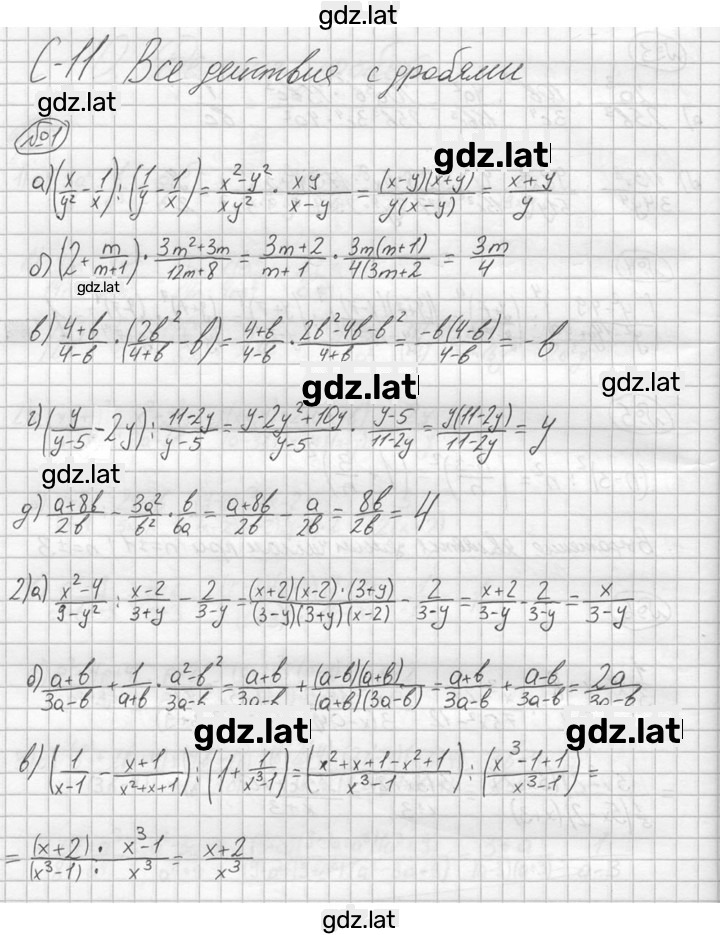 gdz.lat
С-11 Все действия с дробями
gdz.lat
№1
gdz.lat
а) (x/y² - 1/x) : (1/y - 1/x) = (x²-y²)/(xy²) · xy/(x-y) = ((x-y)(x+y))/(y(x-y)) = (x+y)/y
б) (2 + m/(m+1)) · (3m²+3m)/(12m+8) = (3m+2)/(m+1) · (3m(m+1))/(4(3m+2 = 3m/4
gdz.lat
в) (4+b)/(4-b) · (2b²/(4+b) - b) = (4+b)/(4-b) · (2b²-4b-b²)/(4+b) = (-b(4-b))/(4-b) = -b
gdz.lat gdz.lat
г) (y/(y-5) - 2y) : (11-2y)/(y-5) = (y-2y²+10y)/(y-5) · (y-5)/(11-2y) = (y(11-2y))/(11-2y) = y
gdz.lat
д) (a+8b)/(2b) - 3a²/b² · b/(6a) = (a+8b)/(2b) - a/(2b) = 8b/2b = 4
2) а) (x²-4)/(9-y²) : (x-2)/(3+y) - 2/(3-y) = ((x+2)(x-2)·(3+y))/((3-y)(3+y)(x-2)) - 2/(3-y) = (x+2)/(3-y) - 2/(3-y) = x/(3-y)
б) (a+b)/(3a-b) + 1/(a+b) · (a²-b²)/(3a-b) = (a+b)/(3a-b) + ((a-b)(a+b))/((a+b)(3a-b)) = (a+b)/(3a-b) + (a-b)/(3a-b) = 2a/(3a-b)
gdz.lat gdz.lat
в) (1/(x-1) - (x+1)/(x²+x+1)) : (1 + 1/(x³-1)) = ((x²+x+1-x²+1)/(x³-1)) : ((x³-1+1)/(x³-1)) =
= ((x+2) · x³-1)/((x³-1) · x³) = (x+2)/x³
gdz.lat